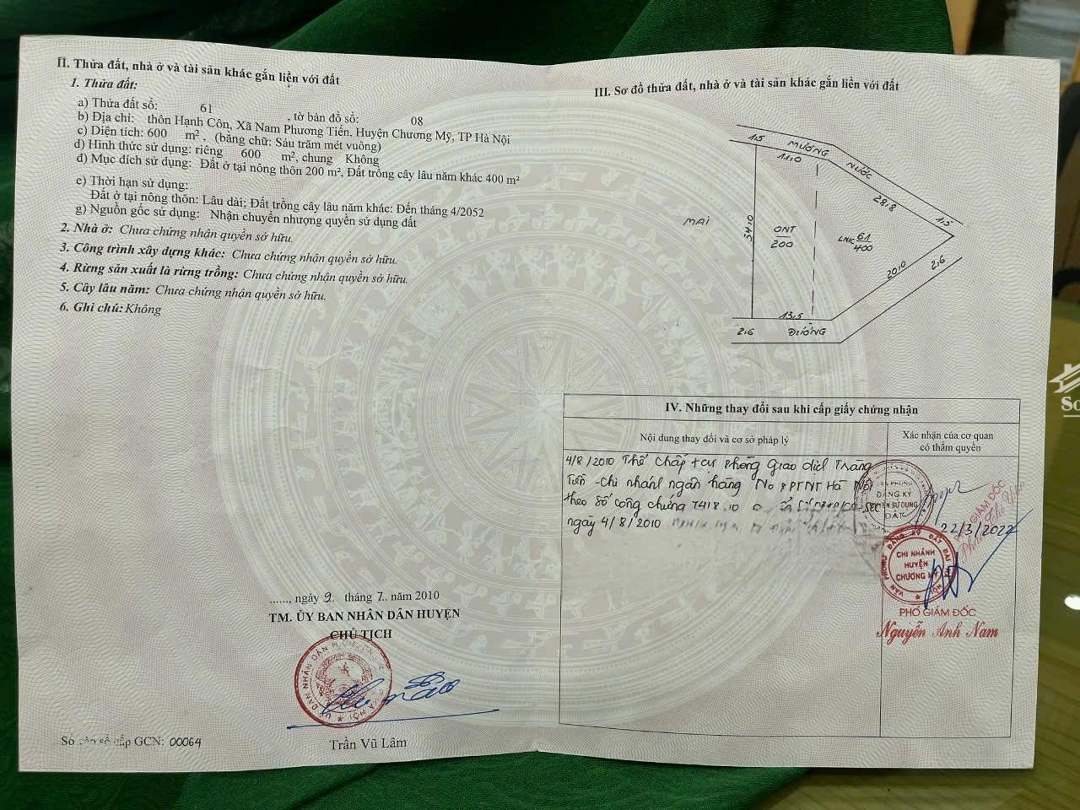 II. Thửa đất, nhà ở và tài sản khác gắn liền với đất
1. Thửa đất:
a) Thửa đất số: 61 , tờ bản đồ số: 08
b) Địa chỉ: thôn Hạnh Côn, Xã Nam Phương Tiến, Huyện Chương Mỹ, TP Hà Nội
c) Diện tích: 600 m², (bằng chữ: Sáu trăm mét vuông)
d) Hình thức sử dụng: riêng 600 m², chung Không
đ) Mục đích sử dụng: Đất ở tại nông thôn 200 m², Đất trồng cây lâu năm khác 400 m²
e) Thời hạn sử dụng:
Đất ở tại nông thôn: Lâu dài; Đất trồng cây lâu năm khác: Đến tháng 4/2052
g) Nguồn gốc sử dụng: Nhận chuyển nhượng quyền sử dụng đất
2. Nhà ở: Chưa chứng nhận quyền sở hữu.
3. Công trình xây dựng khác: Chưa chứng nhận quyền sở hữu.
4. Rừng sản xuất là rừng trồng: Chưa chứng nhận quyền sở hữu.
5. Cây lâu năm: Chưa chứng nhận quyền sở hữu.
6. Ghi chú: Không
......, ngày 9. tháng 7.. năm 2010
TM. ỦY BAN NHÂN DÂN HUYỆN
CHỦ TỊCH
Trần Vũ Lâm
Số vào sổ cấp GCN: 00064
III. Sơ đồ thửa đất, nhà ở và tài sản khác gắn liền với đất
1,5
MƯƠNG NƯỚC
11.0
28.8
1,5
MAI
34.0
ONT
200
LNK 61
400
20.0
2,6
13,5
2,6
ĐƯỜNG
IV. Những thay đổi sau khi cấp giấy chứng nhận
Nội dung thay đổi và cơ sở pháp lý
Xác nhận của cơ quan
có thẩm quyền
4/8/2010 Thế chấp tại phòng giao dịch Tràng
Tiền - Chi nhánh ngân hàng No & PTNT Hà Nội
theo số công chứng 7418.10
ngày 4/8/2010
ĐĂNG KÝ
QUYỀN SỬ DỤNG
ĐẤT
GIÁM ĐỐC
22/3/2022
VĂN PHÒNG ĐĂNG KÝ ĐẤT ĐAI
CHI NHÁNH
HUYỆN
CHƯƠNG MỸ
PHÓ GIÁM ĐỐC
Nguyễn Anh Nam
So